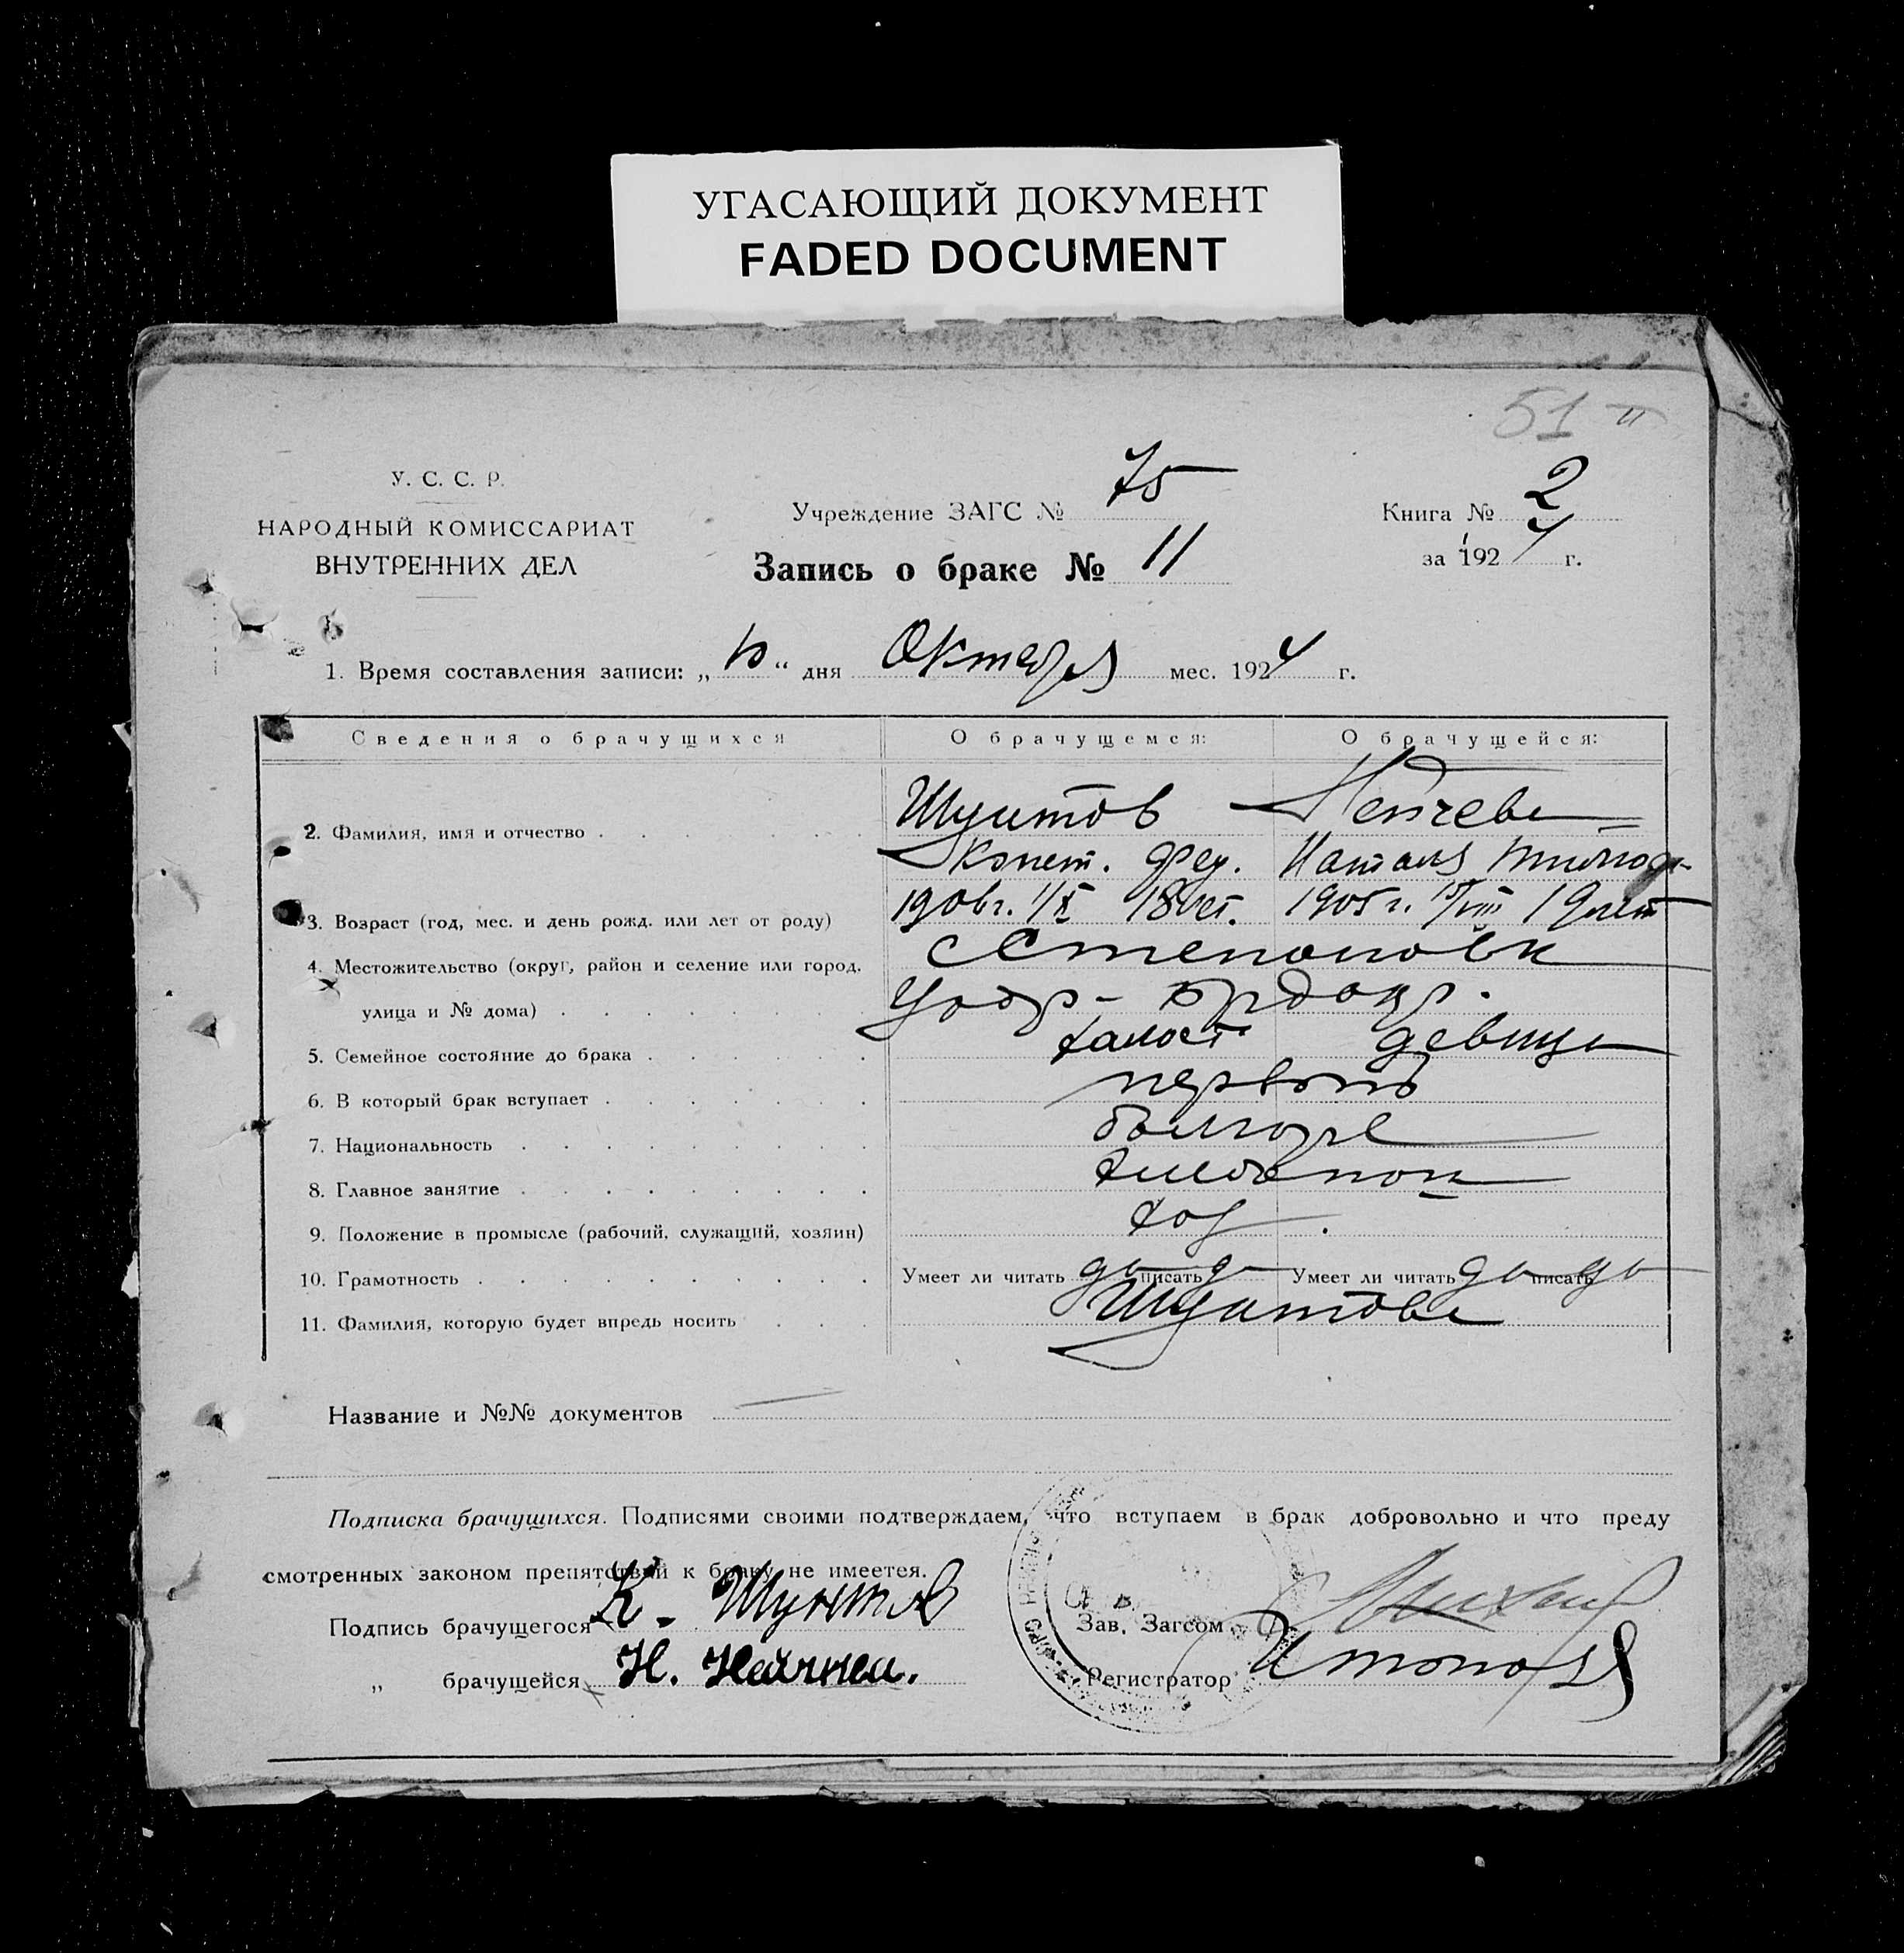 УГАСАЮЩИЙ ДОКУМЕНТ
FADED DOCUMENT
51
У. С. С. Р.
НАРОДНЫЙ КОМИССАРИАТ
ВНУТРЕННИХ ДЕЛ
Учреждение ЗАГС № 75
Запись о браке № 11
Книга № 2
за 1924 г.
1. Время составления записи: „10“ дня Октября мес. 1924 г.
Сведения о брачущихся О брачущемся: О брачущейся:
2. Фамилия, имя и отчество . . . . . . . Шунтов Нейчева
Конст. Фед. Наталя
3. Возраст (год, мес. и день рожд. или лет от роду) 1906 г. 1/X 18 лет. 1905 г. 15/VIII 19 лет
4. Местожительство (округ, район и селение или город, Степановка
улица и № дома) . . . . . . . .
5. Семейное состояние до брака . . . . . . холост девица
6. В который брак вступает . . . . . . . первый
7. Национальность . . . . . . . . . болгаре
8. Главное занятие . . . . . . . . . хлебопаш
9. Положение в промысле (рабочий, служащий, хозяин) хоз.
10. Грамотность . . . . . . . . . . Умеет ли читать да писать да Умеет ли читать да писать да
11. Фамилия, которую будет впредь носить . . . Шунтова
Название и №№ документов —
Подписка брачущихся. Подписями своими подтверждаем, что вступаем в брак добровольно и что преду
смотренных законом препятствий к браку не имеется.
Подпись брачущегося К. Шунтов
Зав. Загсом
„ брачущейся Н. Нейчева.
Регистратор